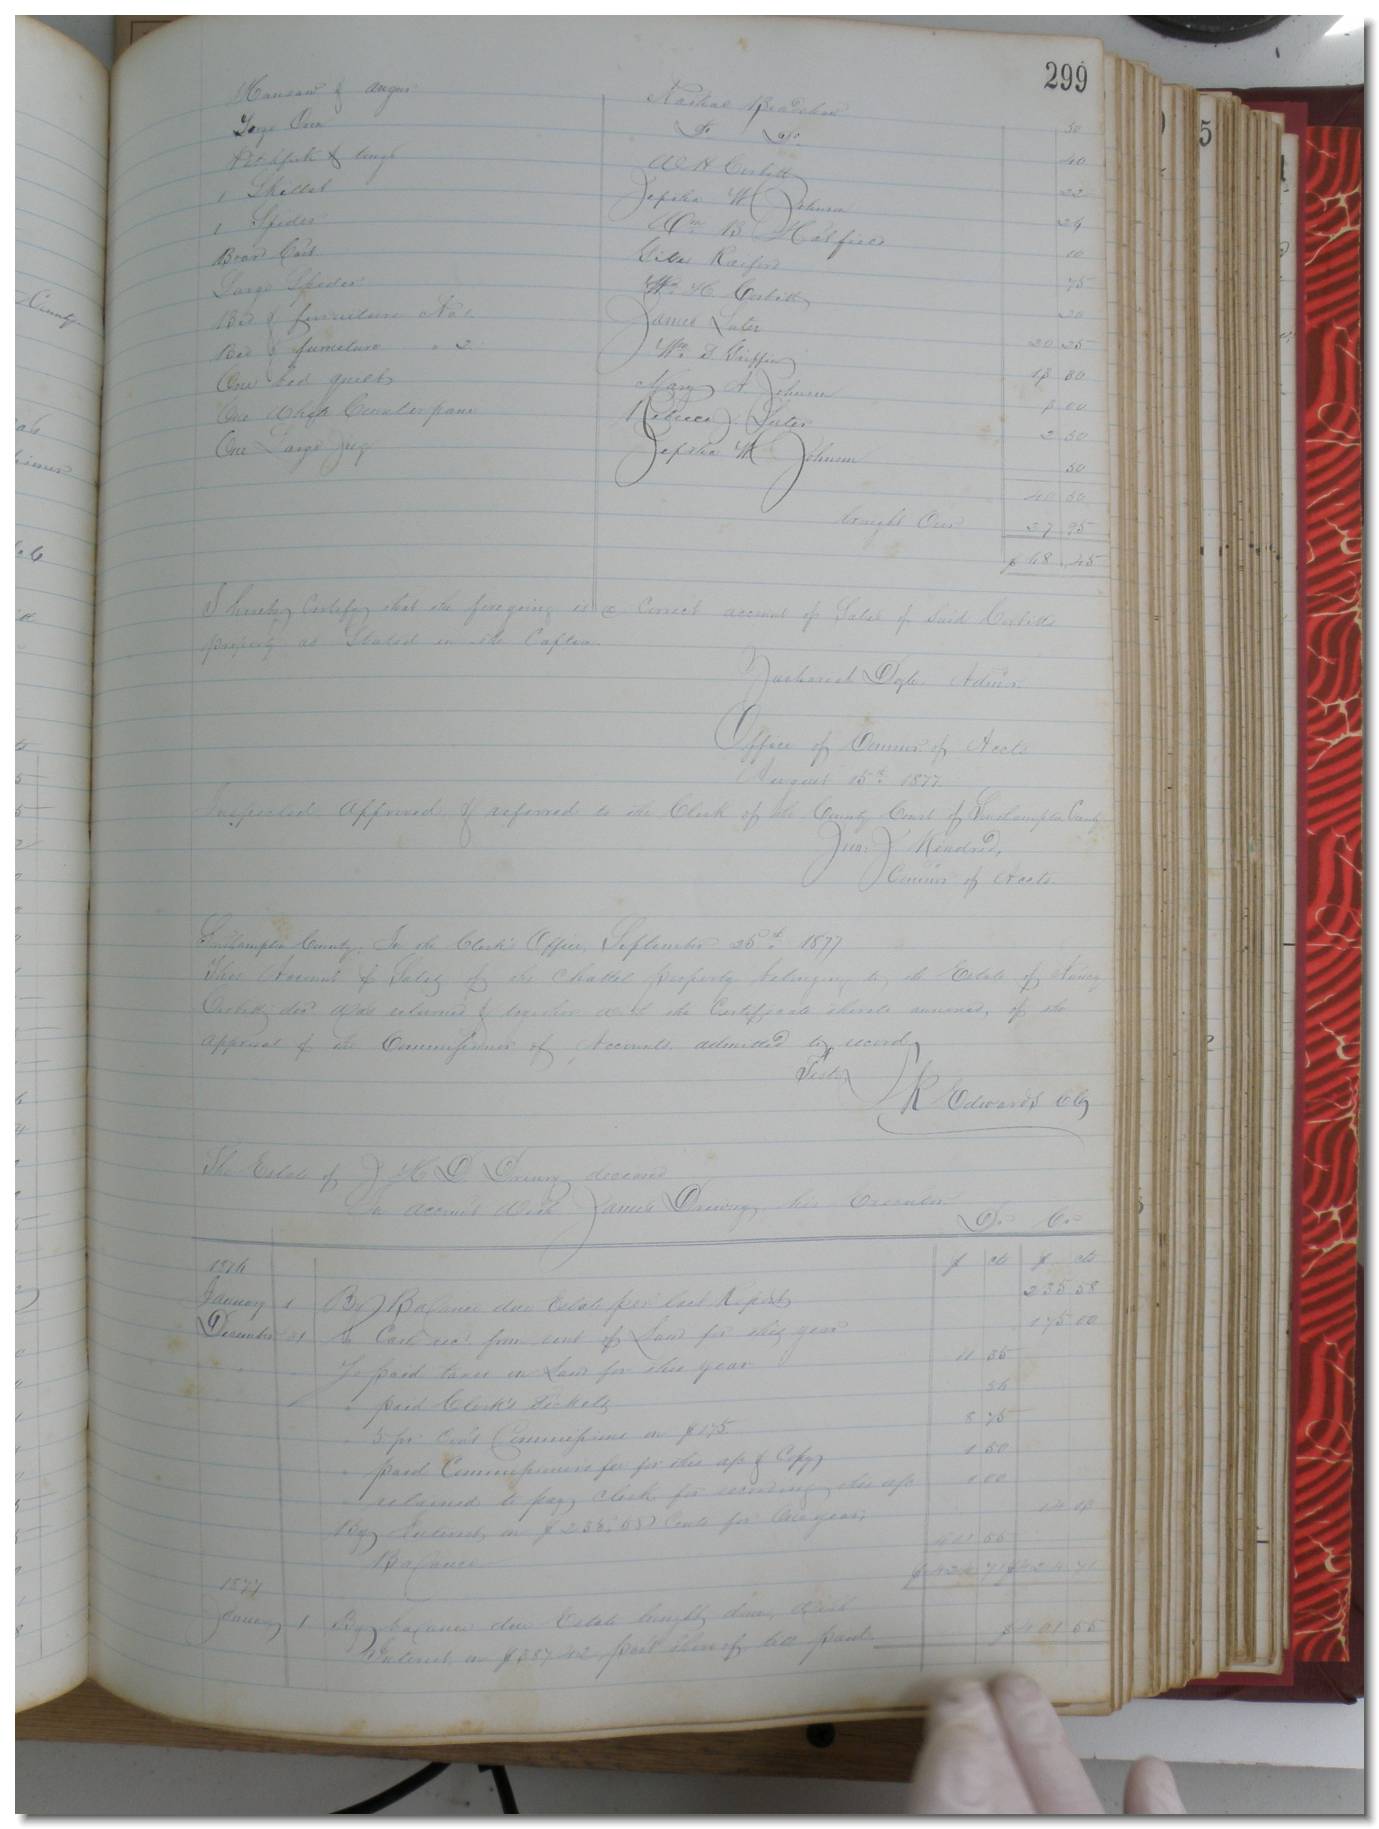 299
50
Large Oven Do Do 40
& tongs W H Corbitt 22
1 Skillet Jephtha W Johnson 24
1 Spider Wm B Hatfield 10
Giles Raiford 75
Large Spider Wm H Corbitt 20
1 Bed & furniture No 1. James Luter 20 25
Bed & furniture " 2. Wm T. Griffin 13 80
One bed quilt Mary A Johnson 3 00
One Counterpane Rebecca J. Luter 2 50
One Large Jug Jephtha W Johnson 50
40 50
brought Over 27 95
$68.45
I hereby Certify that the foregoing is a Correct account of Sales of Said Corbitts
property as Stated in the Caption.
Doyle Admr.
Office of Commr. of Accts
August 15th 1877.
Inspected Approved & referred to the Clerk of the County Court of Southampton County
Jno. J. Kindred,
Commr of Accts.
Southampton County. In the Clerk's Office, September 25th 1877
This Account of Sales of the Chattel property belonging to the Estate of
Corbitt, decd was returned & together with the Certificate thereto annexed, of the
approval of the Commissioner of Accounts, admitted to record
Teste
L R Edwards Clk
The Estate of J H D Drewry deceased
In account with James Drewry, his Executor
Dr. Cr.
1876 $ cts $ cts
January 1 By Balance due Estate per last Report 235 58
December 31 By Cash recd. from rent of Land for this year 175 00
" " To paid taxes on Land for this year 11 35
" paid Clerk's tickets 56
" 5 pr cent Commissions on $175 8 75
" paid Commissioners fee for this a/c & Copy 1 50
" retained to pay Clerk for recording this a/c 1 00
By Interest on $235.58 Cents for One year, 14 13
Balance 401 55
$424 71 $424 71
1877
January 1 By balance due Estate brought down, with $401 55
Interest on $387.42, part thereof till paid